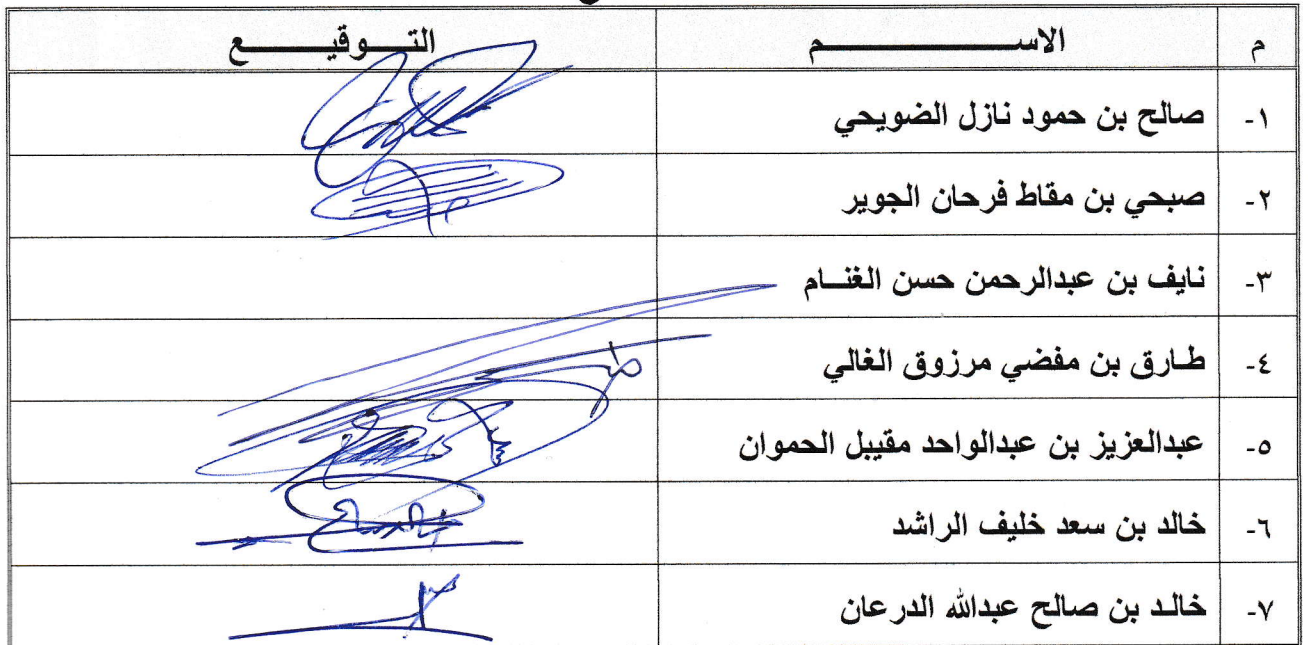 م الاســـــــــــــــم التـــوقيـــــــع
١- صالح بن حمود نازل الضويحي
٢- صبحي بن مقاط فرحان الجوير
٣- نايف بن عبدالرحمن حسن الغنــام
٤- طـارق بن مفضي مرزوق الغالي
٥- عبدالعزيز بن عبدالواحد مقيبل الحموان
٦- خالد بن سعد خليف الراشد
٧- خالـد بن صالح عبدالله الدرعان